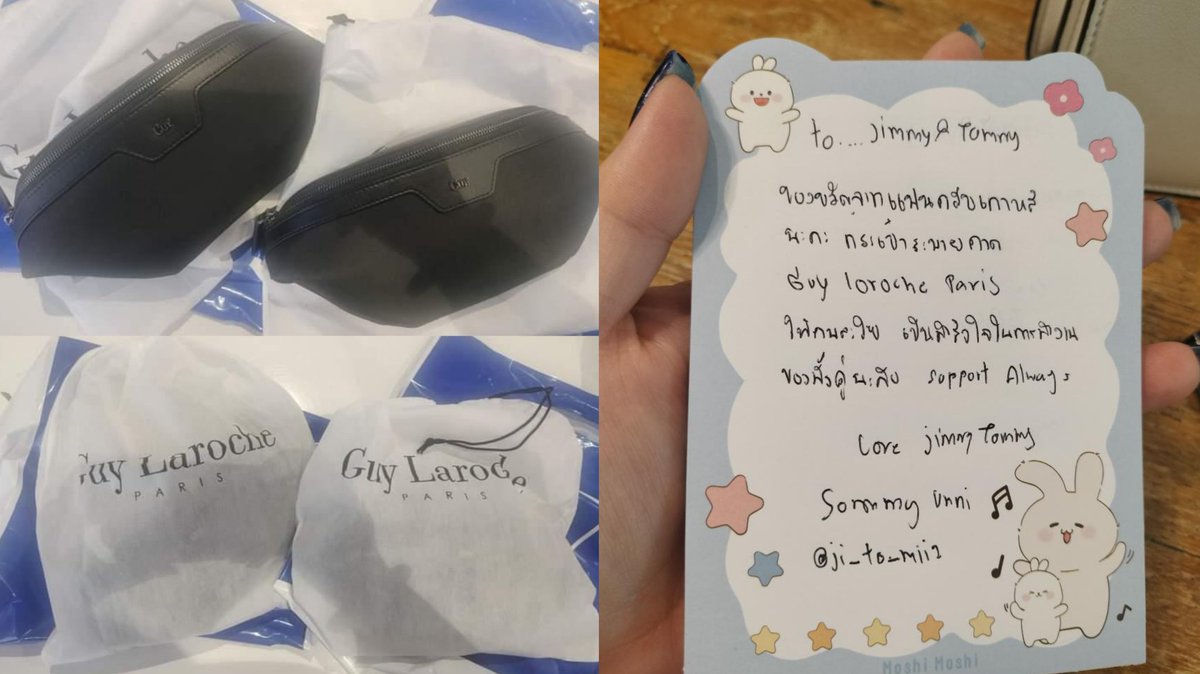 Guy
Guy
Guy Laroche
PARIS
Guy Laroche
PARIS
to.... Jimmy & Tommy
ของขวัญจากแฟนคลับเกาหลี
นะคะ กระเป๋าสะพายคาด
Guy laroche Paris
ให้กันและกัน เป็นกำลังใจในการทำงาน
ของทั้งคู่นะคับ support Always
Love jimmy Tommy
Sommy Unni
@ji_to_mii2
Moshi Moshi